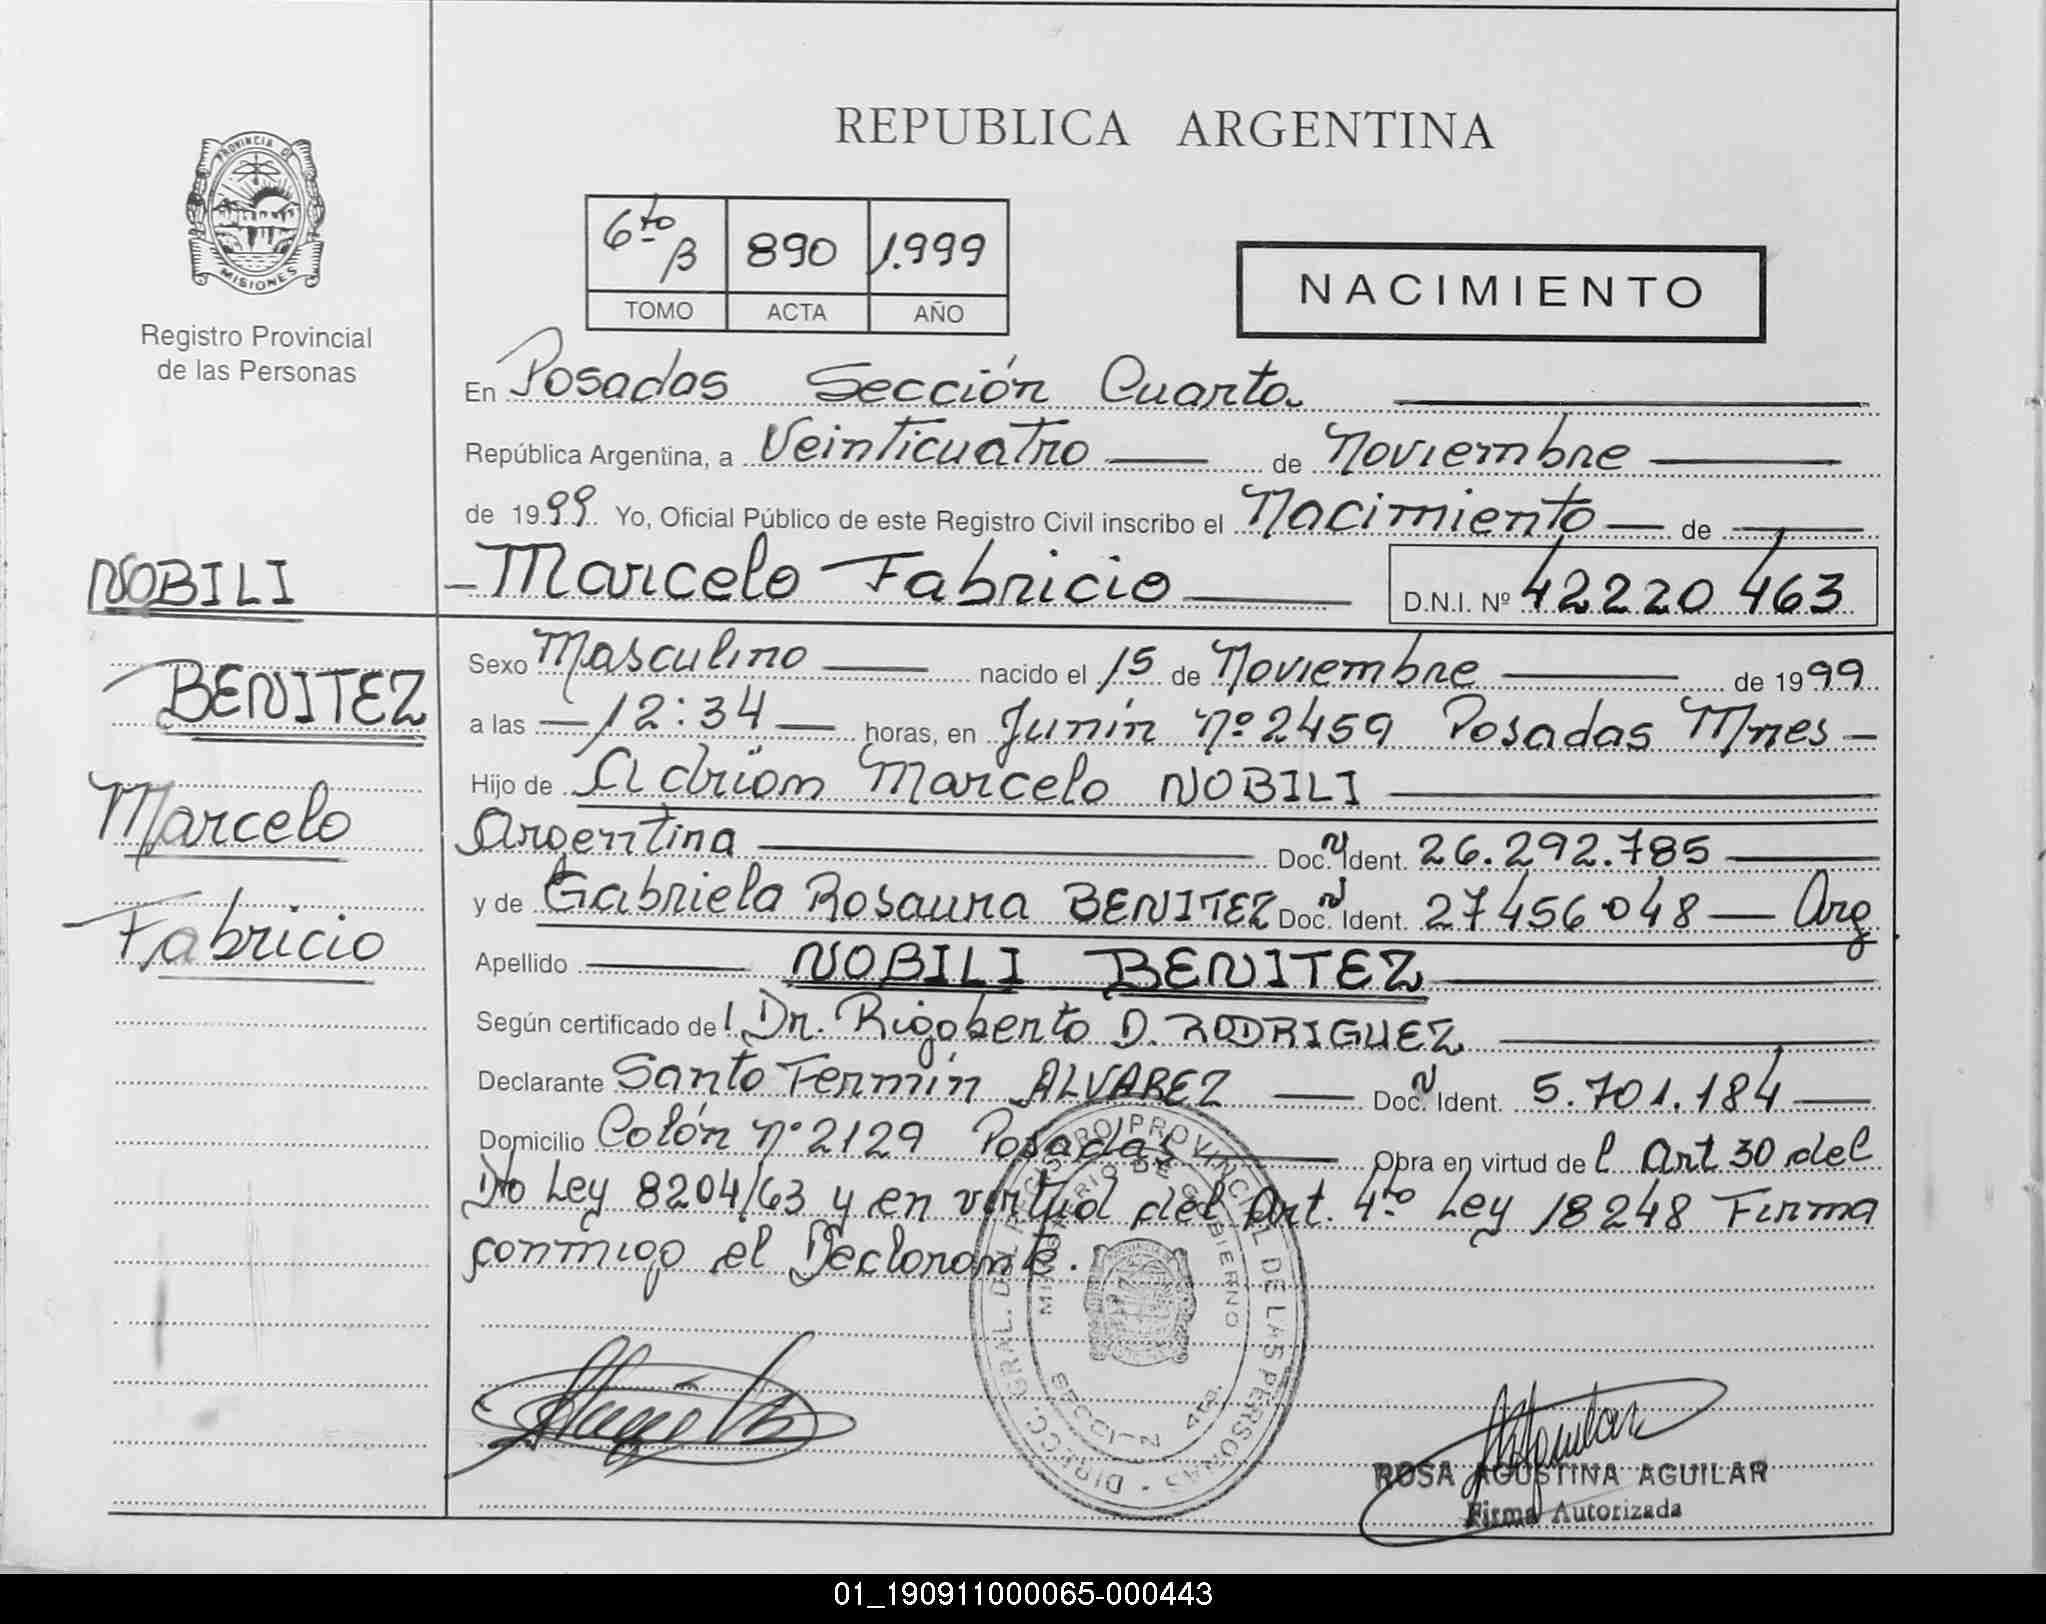 REPUBLICA ARGENTINA
PROVINCIA DE
MISIONES
Registro Provincial
de las Personas
6to B 890 1.999
TOMO ACTA AÑO
NACIMIENTO
En Posadas Sección Cuarta
República Argentina, a Veinticuatro de Noviembre
de 1999 Yo, Oficial Público de este Registro Civil inscribo el Nacimiento de
Marcelo Fabricio D.N.I. Nº 42220463
NOBILI
BENITEZ
Marcelo
Fabricio
Sexo Masculino nacido el 15 de Noviembre de 1999
a las 12:34 horas, en Junín nº 2459 Posadas Mnes
Hijo de Adrian Marcelo NOBILI
Argentina Doc. N Ident. 26.292.785
y de Gabriela Rosaura BENITEZ Doc. N Ident. 27456.048 Arg
Apellido NOBILI BENITEZ
Según certificado del Dr. Rigoberto D. RODRIGUEZ
Declarante Santo Fermín ALVAREZ Doc. N Ident. 5.701.184
Domicilio Colón nº 2129 Posadas Obra en virtud del Art 30 del
Dto Ley 8204/63 y en virtud del Art. 4to Ley 18248 Firma
conmigo el Declarante.
DIRECC. GRAL. DEL REGISTRO PROVINCIAL DE LAS PERSONAS
MINISTERIO DE GOBIERNO
SECCION 4ta.
ROSA AGUSTINA AGUILAR
Firma Autorizada
01_190911000065-000443